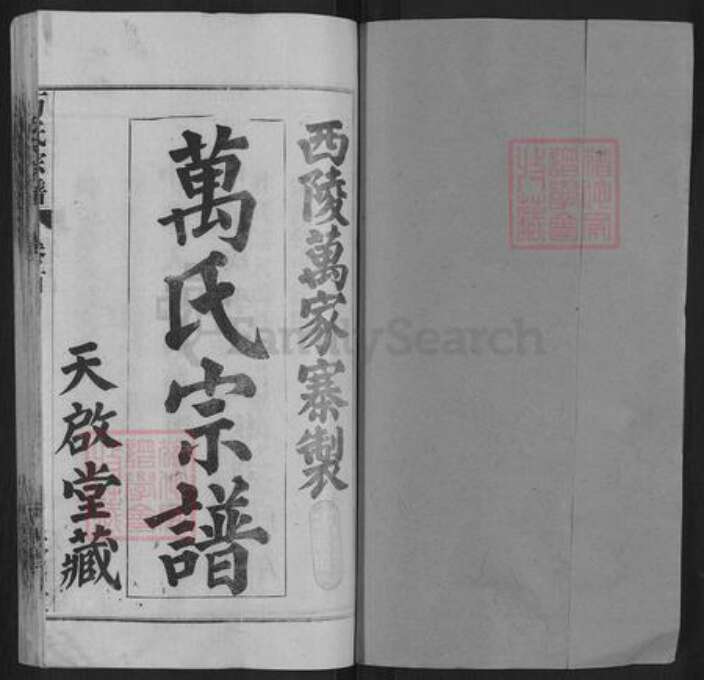 西陵萬家寨製
萬氏宗譜
天啟堂藏
FamilySearch